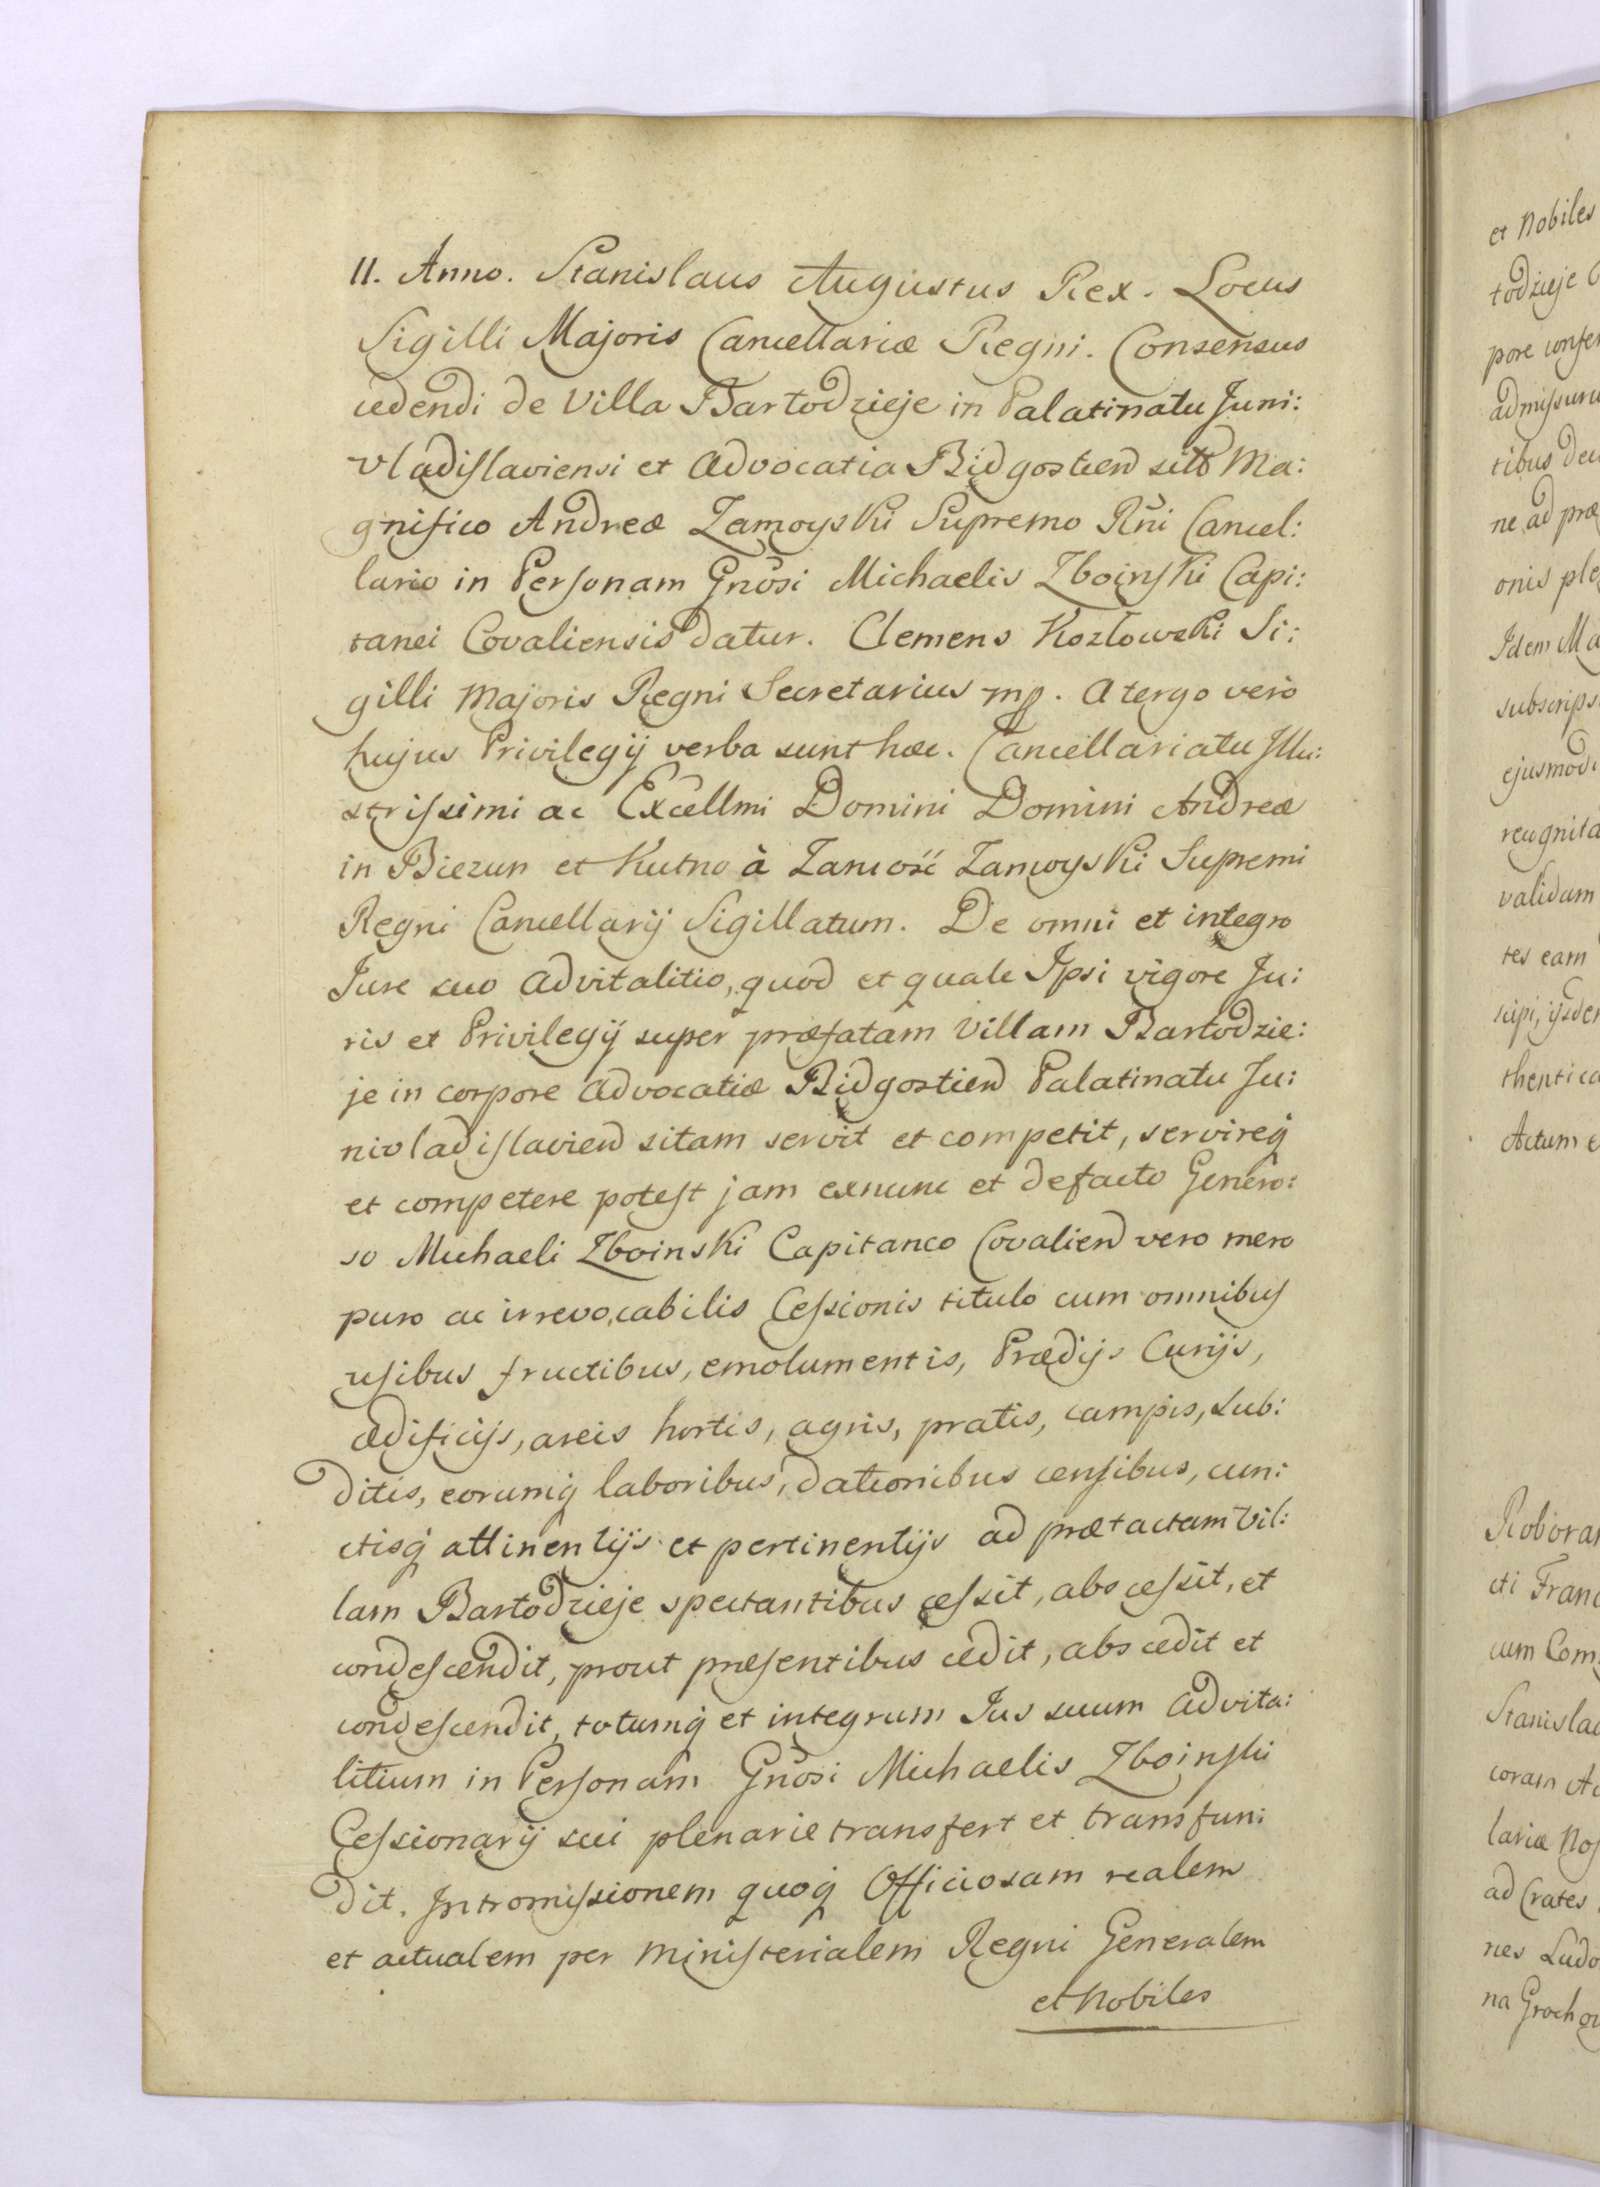 II. Anno. Stanislaus Augustus Rex. Locus
Sigilli Majoris Cancellariæ Regni. Consensus
cedendi de Villa Bartodzieje in Palatinatu Juni:
vladislaviensi et Advocatia Bidgostien sitâ Ma:
gnifico Andreæ Zamoyski Supremo Rñi Cancel:
lario in Personam Gnõsi Michaelis Zboinski Capi:
tanei Covaliensis datur. Clemens Kozłowski Si:
gilli Majoris Regni Secretarius mp. A tergo vero
hujus Privilegij verba sunt hæc. Cancellariatu Illu:
strissimi ac Excellmi Domini Domini Andreæ
in Biezun et Kutno à Zamość Zamoyski Supremi
Regni Cancellarij Sigillatum. De omni et integro
Jure suo Advitalitio, quod et quale Ipsi vigore Ju:
ris et Privilegij super præfatam Villam Bartodzie:
je in corpore Advocatiæ Bidgostien Palatinatu Ju:
nivladislavien sitam servit et competit, servireq
et competere potest jam exnunc et defacto Genero:
so Michaeli Zboinski Capitaneo Covalien vero mero
puro ac irrevocabilis Cessionis titulo cum omnibus
usibus fructibus, emolumentis, Prædijs Curijs,
ædificijs, areis hortis, agris, pratis, campis, Sub:
ditis, eorumq laboribus, dationibus censibus, cun:
ctisq attinentijs et pertinentijs ad prætactam Vil:
lam Bartodzieje spectantibus cessit, abscessit, et
condescendit, prout præsentibus cedit, abscedit et
condescendit, totumq et integrum Jus suum Advita:
litium in Personam Gnõsi Michaelis Zboinski
Cessionarij sui plenarie transfert et transfun:
dit. Intromissionem quoq Officiosam realem
et actualem per Ministerialem Regni Generalem
et Nobiles
et Nobiles
todzieje
pore confer
admissuru
tibus
ne ad præ
onis ple
Idem Ma
subscrips
ejusmodi
recognita
validam
tes eam
thentica
Actum e
Roborar
cti Franc
cum Com
Stanislau
coram Ac
lariæ Nos
ad Crates
nes Ludo
na Grochow